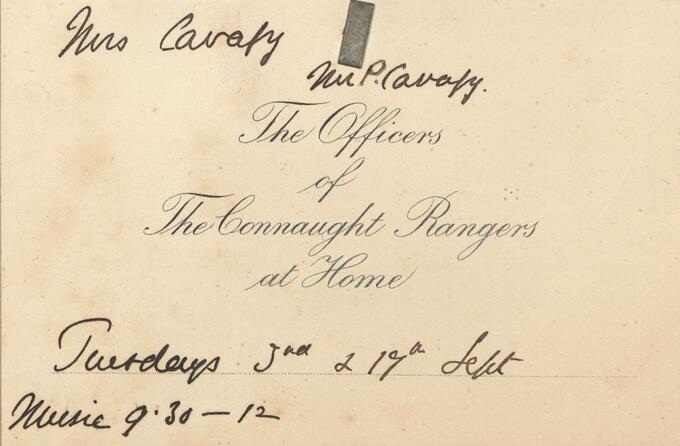 Mrs Cavafy
Mr P. Cavafy.
The Officers
of
The Connaught Rangers
at Home
Tuesdays 3rd & 17th Sept
Music 9.30 — 12